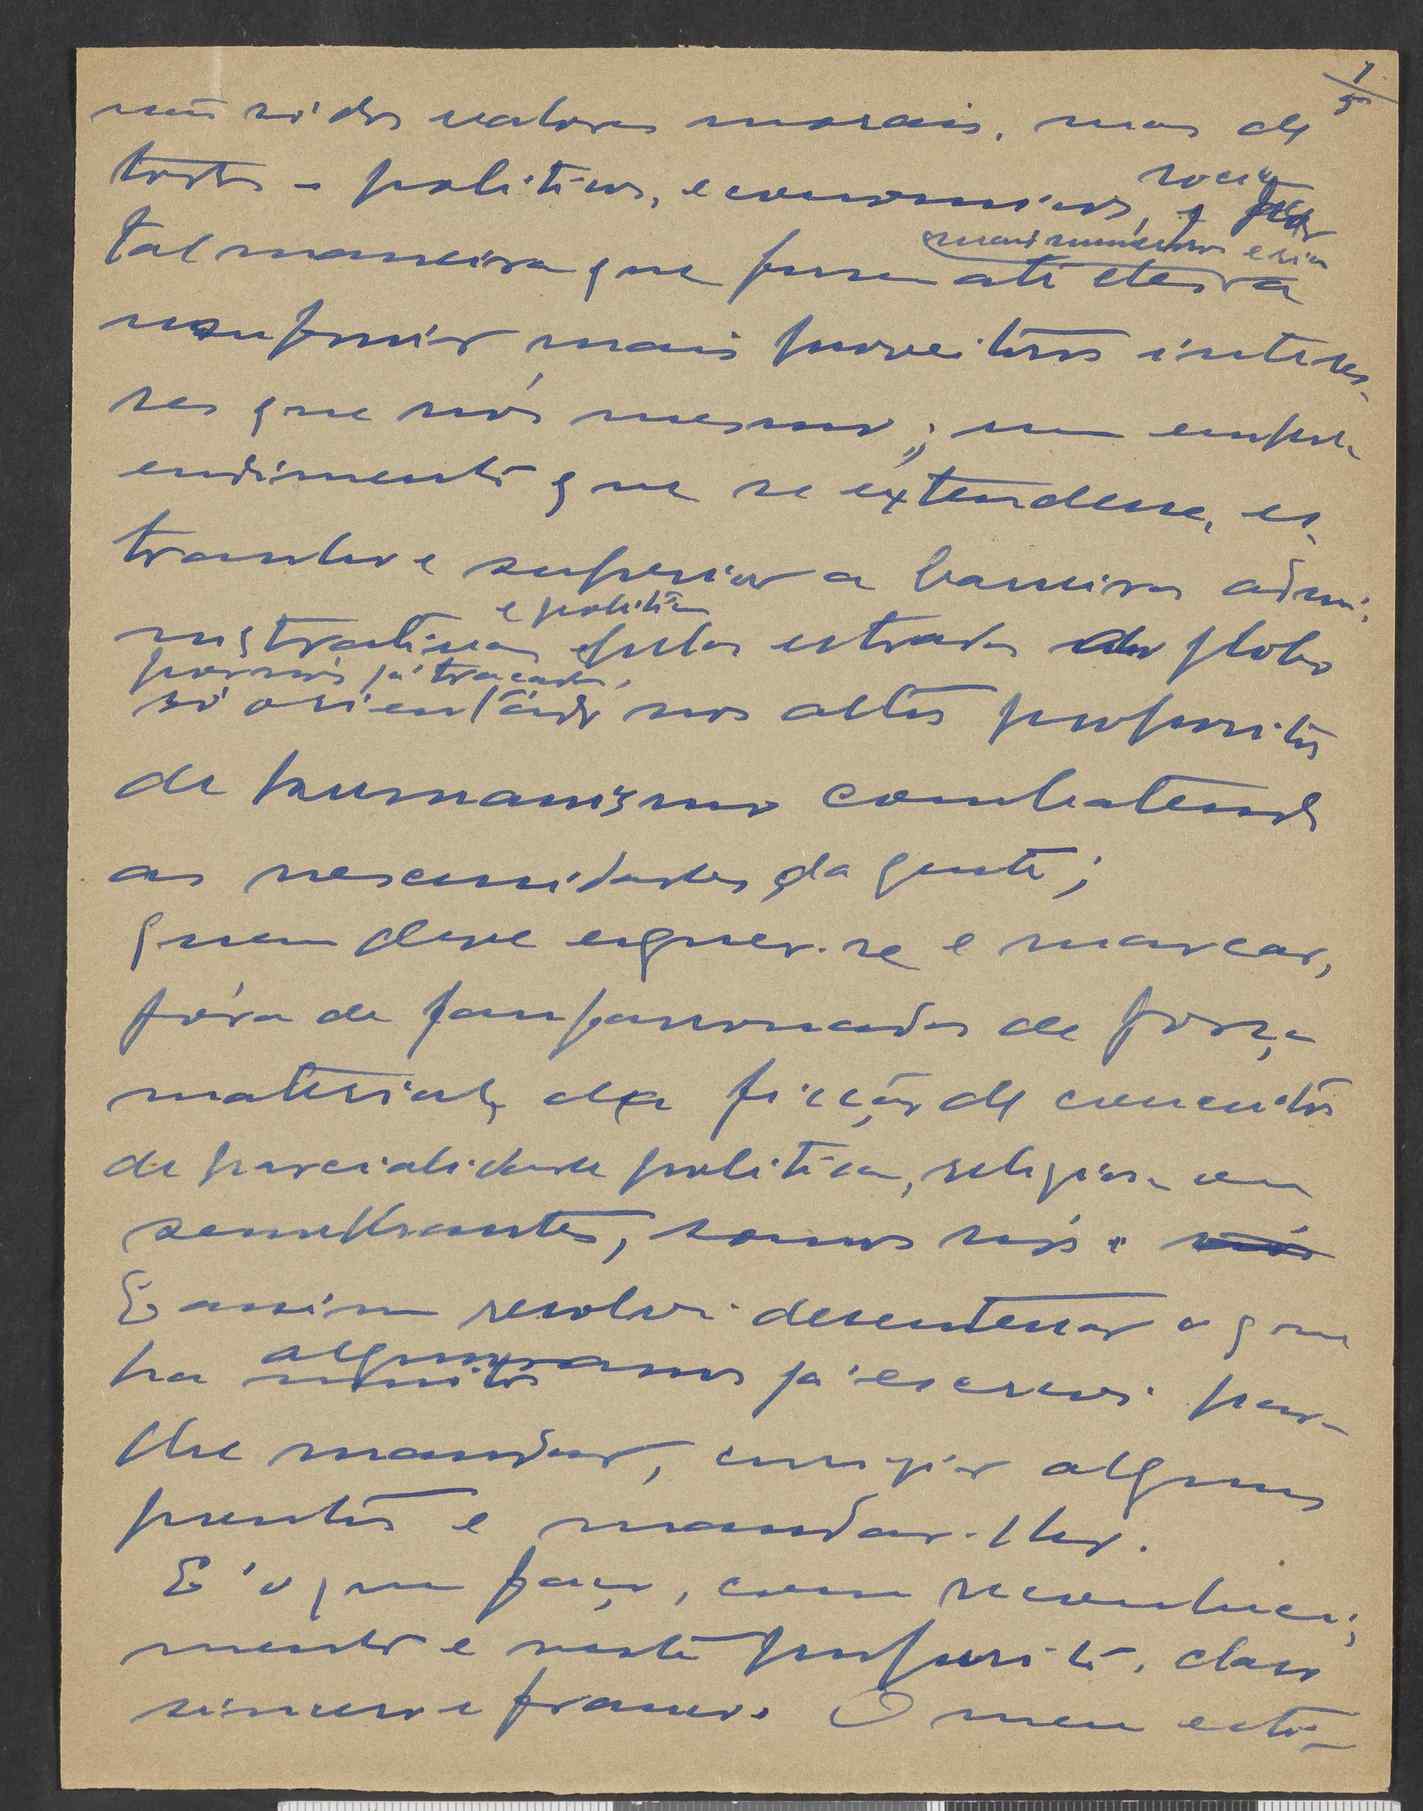 não só dos valores morais, mas de
todos - politicos, economicos, sociais
mais numerosos e
tal maneira que fosse até
usufruir mais proveitosos interes-
ses que nós mesmo; um empre-
endimento que se extendesse, es-
tranho e superior a barreiras admi-
e politicas
nistrativas pelas estradas do globo
por nós já traçadas,
só orientado nos altos propositos
de humanismo combatendo
as nescessidades da gente;
quem deve erguer-se e marcar,
fóra de fanfarronadas de força
material, da ficção de conceitos
de parcialidade politica, religiosa ou
semelhantes, somos nós.
E assim resolvi desenterrar o que
ha alguns anos já escrevi para
lhe mandar, corrigir alguns
pontos e mandar-lho.
E' o que faço, com reconheci-
mento e neste proposito, claro
sincero e franco. O meu esto-